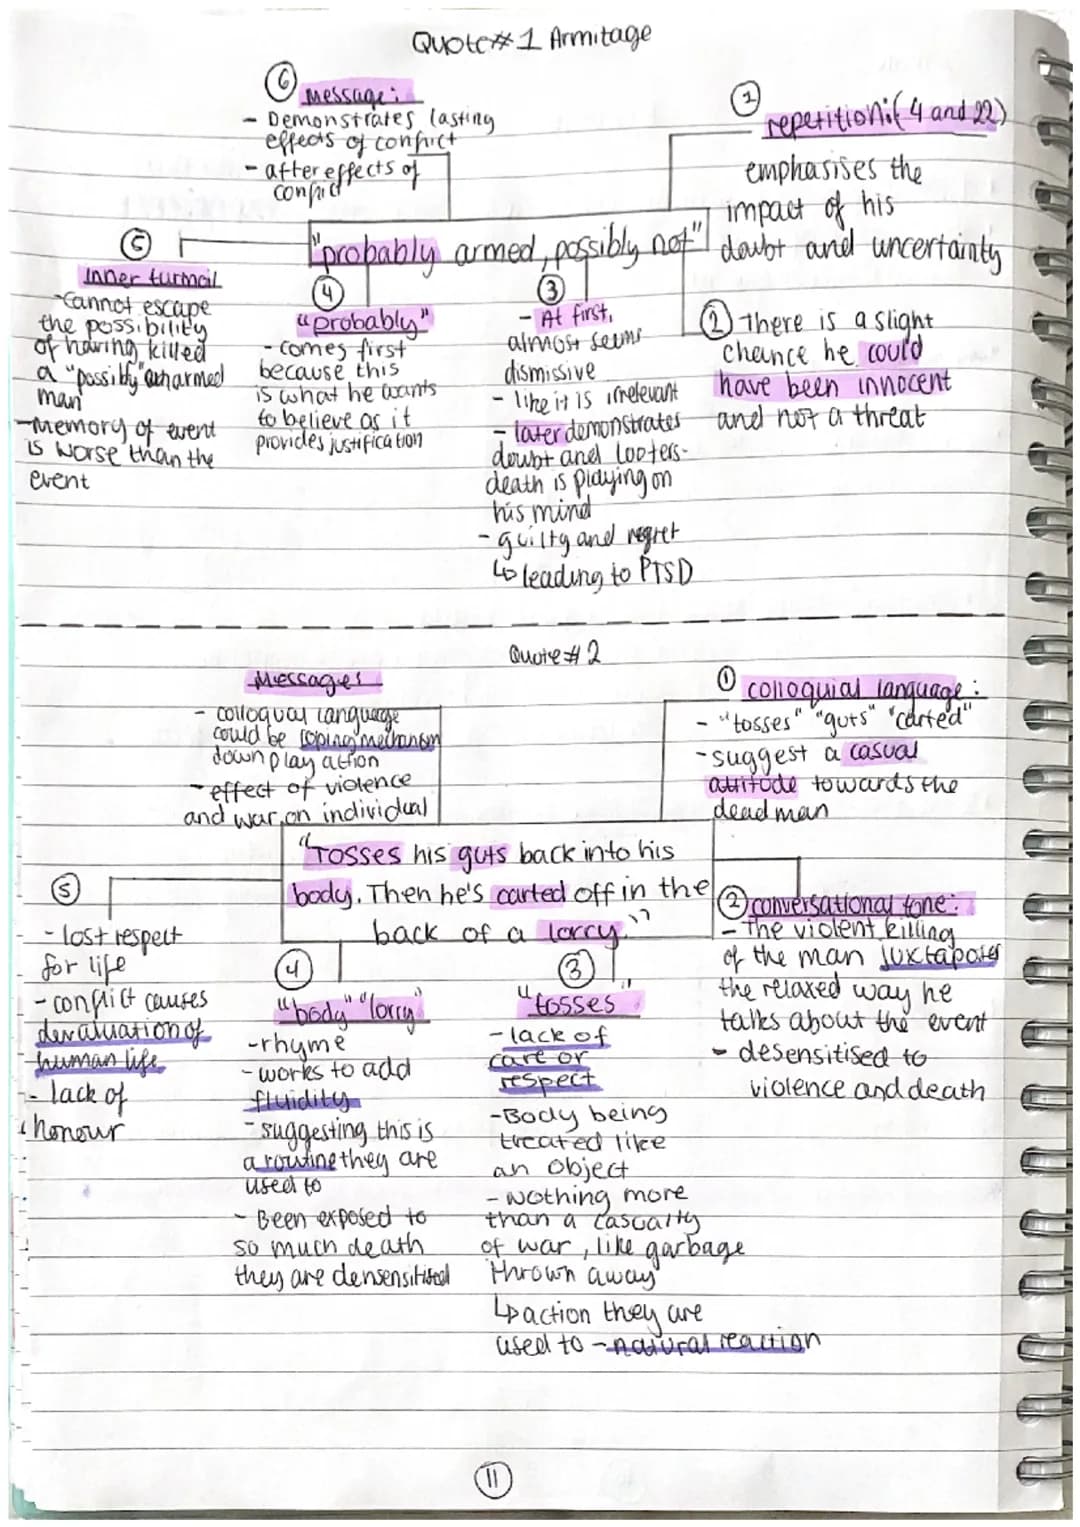 Quote#1 Armitage
⑥ Message:
- Demonstrates lasting
effects of conflict
- after effects of
conflict
① repetition:(4 and 22)
emphasises the
impact of his
doubt and uncertainty
"probably armed, possibly not"
⑤
Inner turmoil
-Cannot escape
the possibility
of having killed
a "possibly" unarmed
man
-Memory of event
is worse than the
event
④
"probably"
- comes first
because this
is what he wants
to believe as it
provides justification
③
- At first,
almost seems
dismissive
- like it is irrelevant
- later demonstrates
doubt and looters-
death is playing on
his mind
- guilty and regret
↳ leading to PTSD
② There is a slight
chance he could
have been innocent
and not a threat
Quote#2
Message:
- colloqual language
could be coping mechanism
downplay action
- effect of violence
and war,on individual
① colloquial language:
- "tosses" "guts" "carted"
-suggest a casual
attitude towards the
dead man
"Tosses his guts back into his
body. Then he's carted off in the
back of a lorry."
⑤
- lost respect
for life
- conflict causes
devaluation of
human life
- lack of
honour
④
"body" "lorry"
-rhyme
-works to add
fluidity
- suggesting this is
a routine they are
used to
- Been exposed to
so much death
they are densensitised
③
"tosses"
- lack of
care or
respect
-Body being
treated like
an object
- Nothing more
than a casualty
of war, like garbage
thrown away
↳ action they are
used to - natural reaction
② conversational tone:
- The violent killing
of the man juxtaposes
the relaxed way he
talks about the event
- desensitised to
violence and death
11